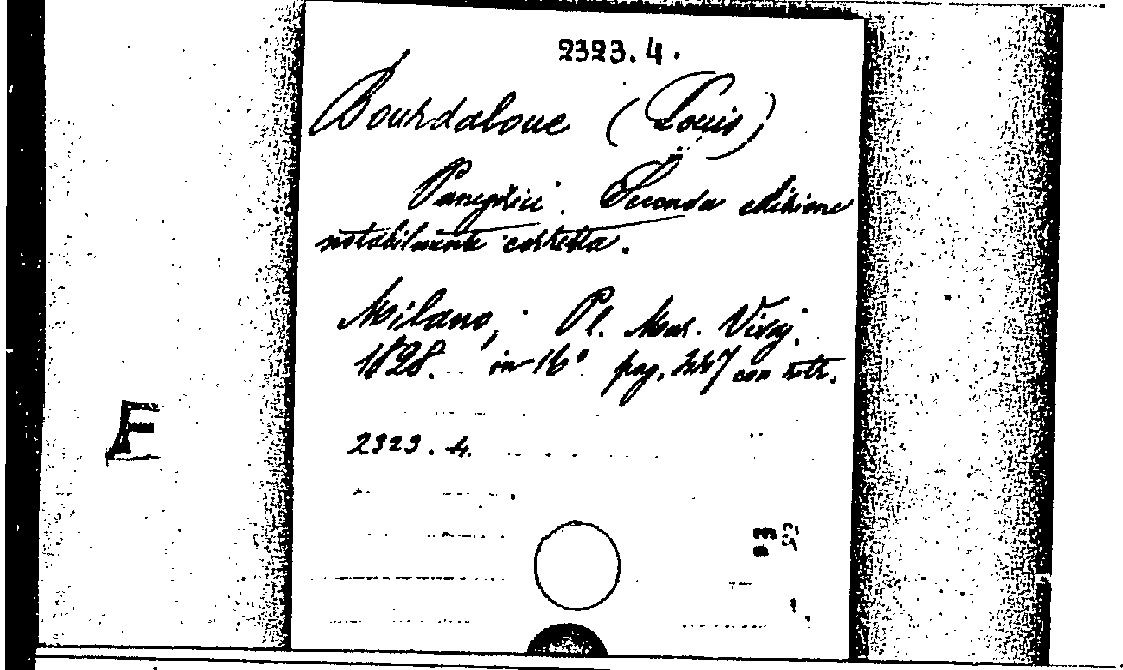 2323.4.
Bourdaloue (Louis)
Panegirici. Seconda edizione
notabilmente corretta.
Milano, Pl. Mar. Visaj.
1828. in 16° pag. 347 con ritr.
E
2323.4.